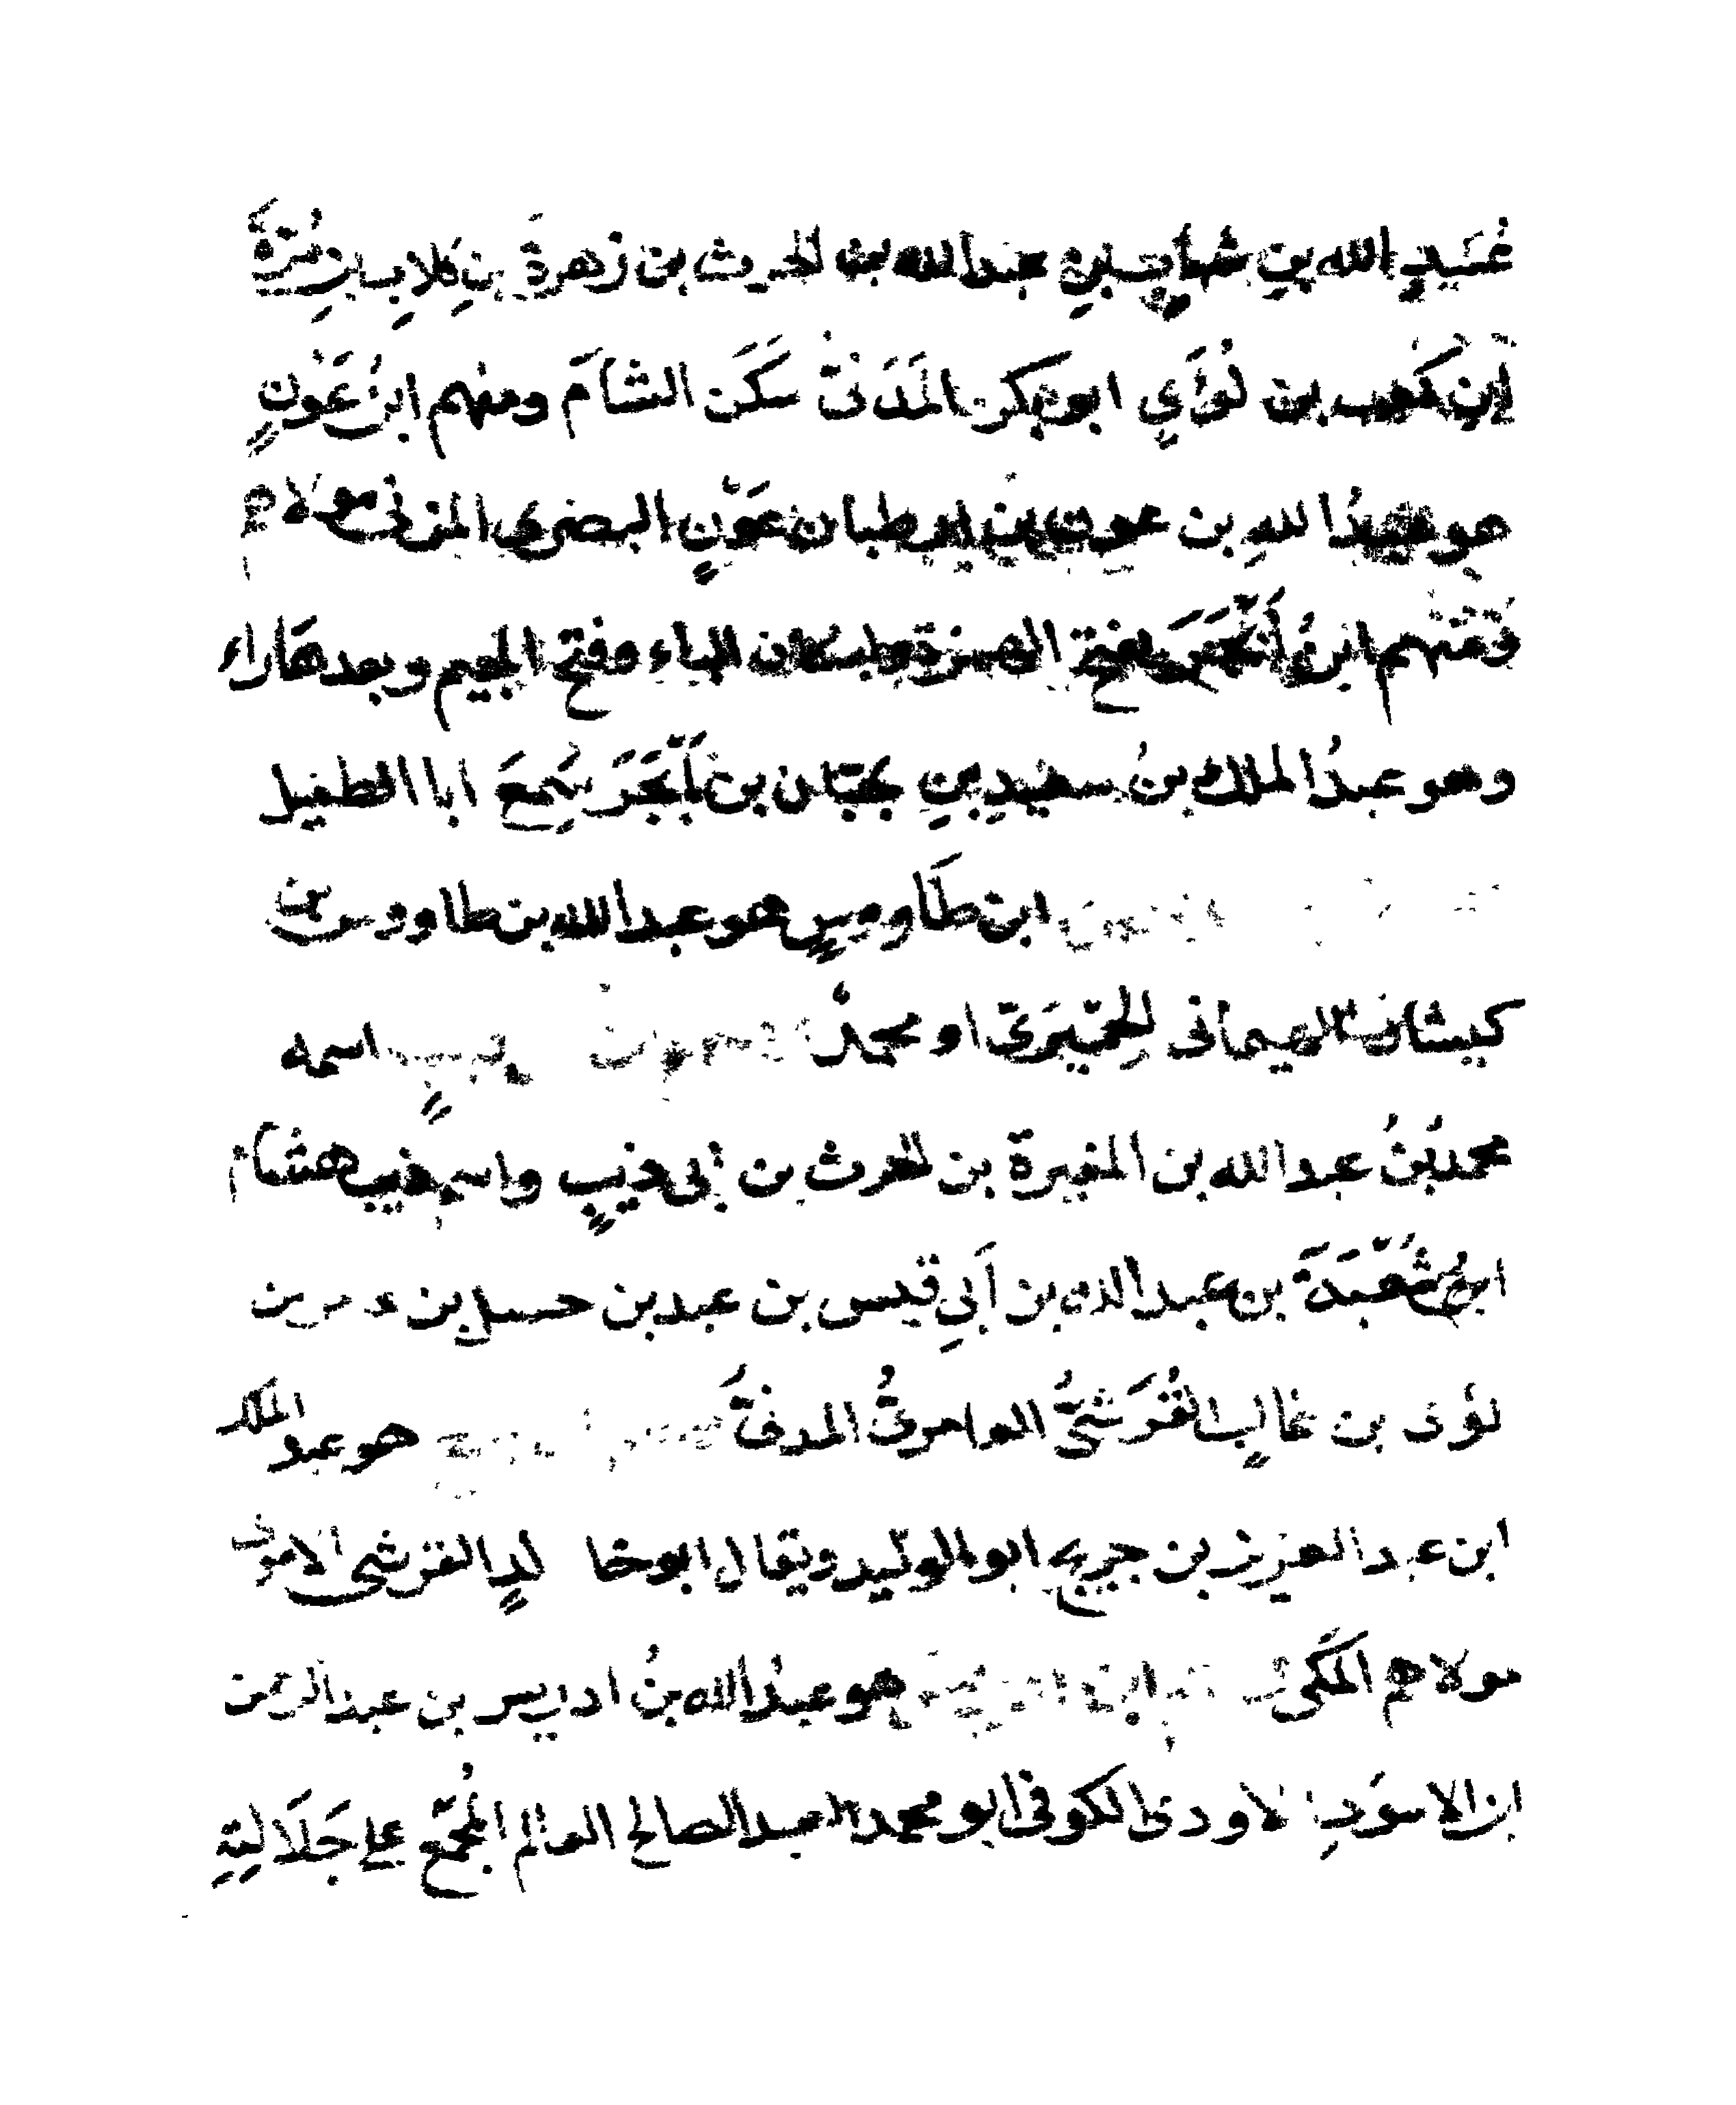 عُبَيدِ الله بنِ شهابِ بنِ عبد الله بن الحرث بن زُهرةَ بنِ كلابِ بنِ مُرّةَ
ابنِ كعب بن لُؤَيٍ ابو بكر المَدَنىّ سَكَن الشأم ومنهم ابنُ عَوْنٍ
هو عبدُ اللهِ بن عون بن ارطبان عَوْنٍ البصرى المزنى مولاهم
ومنهم ابنُ أَبْجَرَ بفتح الهمزة واسكان الباء وفتح الجيم وبعدها راء
وهو عبدُ الملك بنُ سعيدِ بنِ حيّان بن أَبْجَرَ سَمِعَ ابا الطفيل
ابن طَاووسٍ هو عبد الله بن طاووس بن
كيسان اليمانى الحِمْيَرىّ او محمدٌ اسمه
محمد بنُ عبد الله بن المغيرة بن الحرث بن ابى ذيبٍ واسم ذيب هشام
ابنُ شُعْبَةَ بن عبد الله بن أَبِي قيس بن عبد بن حسل بن عامر بن
لؤى بن غالبٍ القُرَشىُّ العامرىُّ المدنىُّ هو عبد الملك
ابن عبد العزيز بن جريج ابو الوليد ويقال ابو خالدٍ القرشى الاموى
مولاهم المَكىُّ هو عبدُ الله بنُ ادريس بن عبد الرحمن
ابن الاسوَدِ الاودى الكوفى ابو محمد العبد الصالح العالم المُجمَّع على جَلَالتِهِ